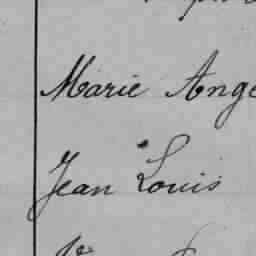 Marie Ange
Jean Louis